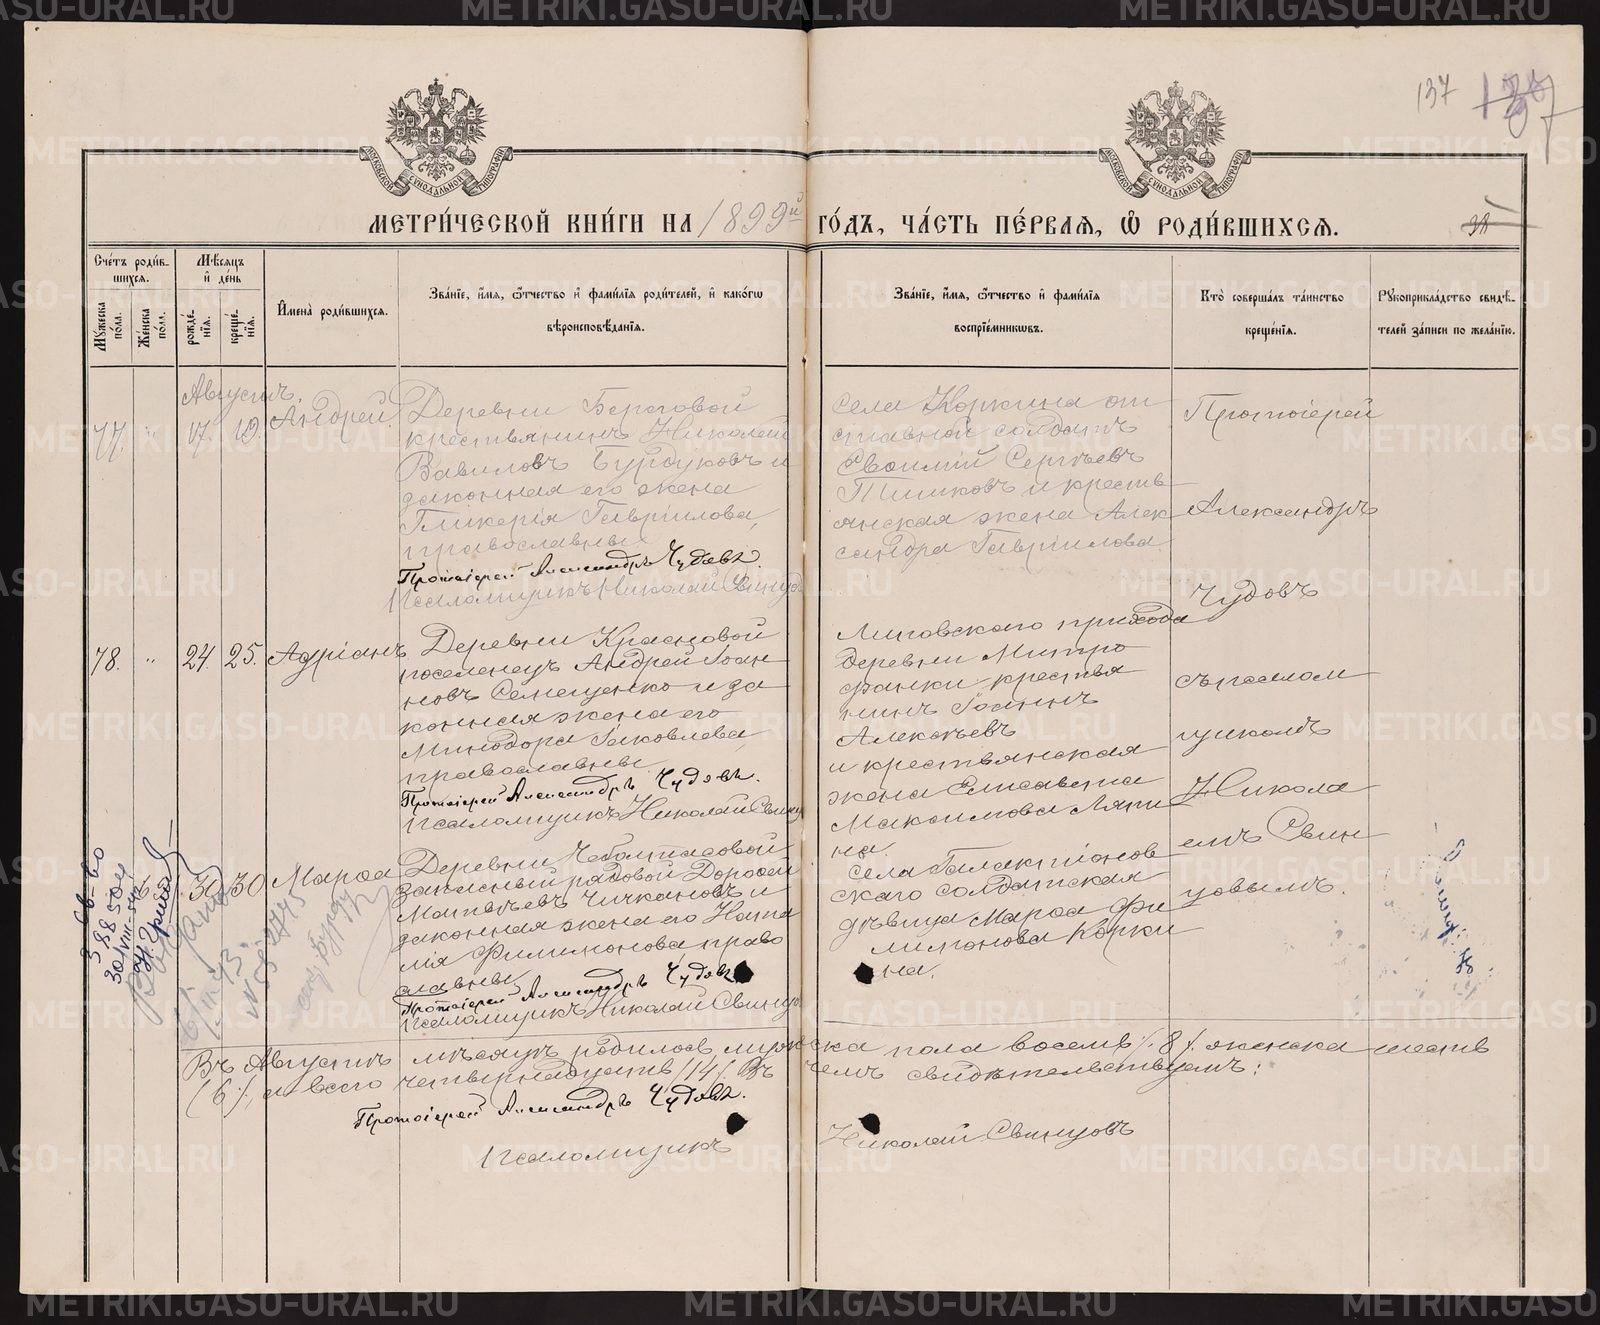 137
137
МОСКОВСКОЙ СѴНОДАЛЬНОЙ ТИПОГРАФІИ
МОСКОВСКОЙ СѴНОДАЛЬНОЙ ТИПОГРАФІИ
МЕТРИ́ЧЕСКОЙ КНИ́ГИ НА 1899й ГО́ДЪ, ЧА́СТЬ ПЕ́РВАЯ, Ѽ РОДИ́ВШИХСЯ.
38
Сче́тъ роди́в-
шихся.
Мѣ́сяцъ
и҆ де́нь
Мꙋ́жеска по́лꙋ.
Же́нска пол.
рожде́-
нїя.
креще́-
нїя.
И҆мена̀ роди́вшихся.
Зва́нїе, и҆́мя, ѻ҆́тчество и҆ фами́лїя роди́телей, и҆ како́гѡ
вѣроисповѣ́данїя.
Зва́нїе, и҆́мя, ѻ҆́тчество и҆ фами́лїя
воспрїе́мниковъ.
Кто̀ соверша́лъ та́инство
креще́нїя.
Рꙋкоприкла́дство свидѣ́-
телей за́писи по жела́нїю.
Августъ.
77. " 17. 19. Андрей.
Деревни Береговой
крестьянинъ Николай
Вавиловъ Бурдуковъ и
законная его жена
Гликерія Гавріилова,
православные
Протоіерей Александръ Чудовъ.
Псаломщикъ Николай Свинцов
села Коркина от
ставной солдатъ
Сергѣевъ
Тишковъ и кресть
янская жена Алек
сандра Гавріилова.
Протоіерей
Александръ
Чудовъ
съ псалом
щикомъ
Никола
емъ Свин
цовымъ.
78. " 24. 25. Адріанъ
Деревни Красновой
поселенецъ Андрей Іоан
новъ Семещенко и за
конная жена его
Минодора Іаковлева,
православные
Протоіерей Александръ Чудовъ.
Псаломщикъ Николай Свинц
Липовскаго прихода
деревни Митро
фанки крестья
нинъ Іоаннъ
Алексѣевъ
и крестьянская
жена Елисавета
Максимова Ляпи
на.
" 6 30 30 Марѳа
Деревни
запасный рядовой Дороѳей
Матвѣевъ Чичкановъ и
законная жена его Ната
лія Филимонова право
славные
Протоіерей Александръ Чудовъ
Псаломщикъ Николай Свинцо
села Галактіонов
скаго солдатская
дѣвица Марѳа Фи
лимонова Корки
на.
Св-во
Въ Августѣ мѣсяцѣ родилось мужеска пола восемь /.8/. женска шесть
(6)., а всего четырнадцать /14/. Въ чемъ свидѣтельствуемъ:
Протоіерей Александръ Чудовъ.
Псаломщикъ Николай Свинцовъ
METRIKI.GASO-URAL.RU